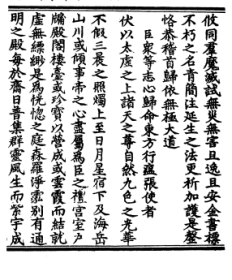 攸同羣魔滅試無災無害且逸且安金書標
不朽之名青簡注延生之法更祈加護是鏧
恪恭稽首歸依無極大道
臣衆等志心歸命東方行瘟張使者
伏以太虛之上諸天之尊自然九色之光華
不假三晨之照燭上至日月星宿下及海岳
山川或傾事帝之心盡屬為臣之禮宮室戶
牖殿閣樓臺或珍寶以營成或雲霞而結就
虛無縹緲是為恍惚之庭森羅淨霐別有通
明之殿每於齋日普集群靈風生而紫宇成